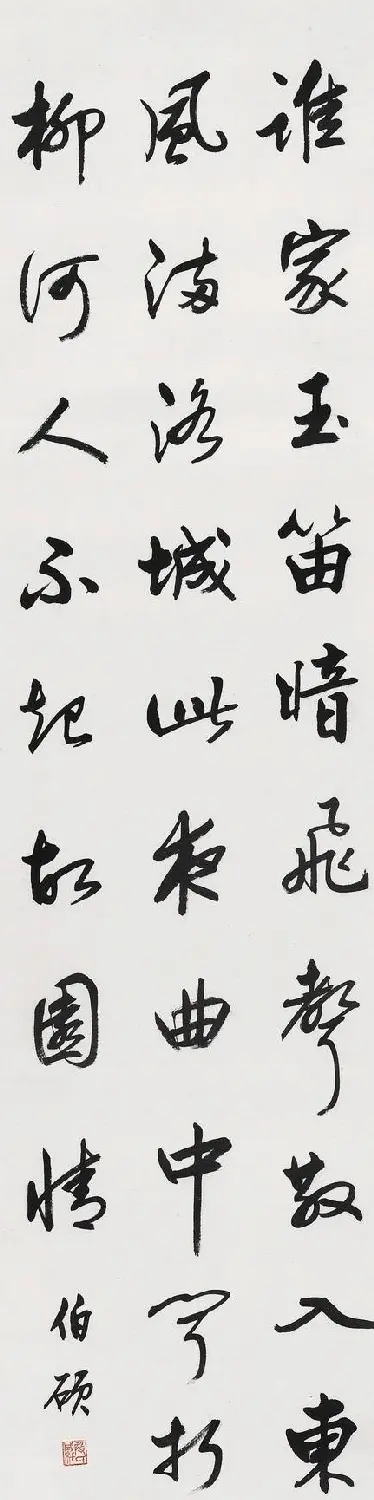 誰家玉笛暗飛聲散入東
風滿洛城此夜曲中聞折
柳何人不起故園情
伯碩